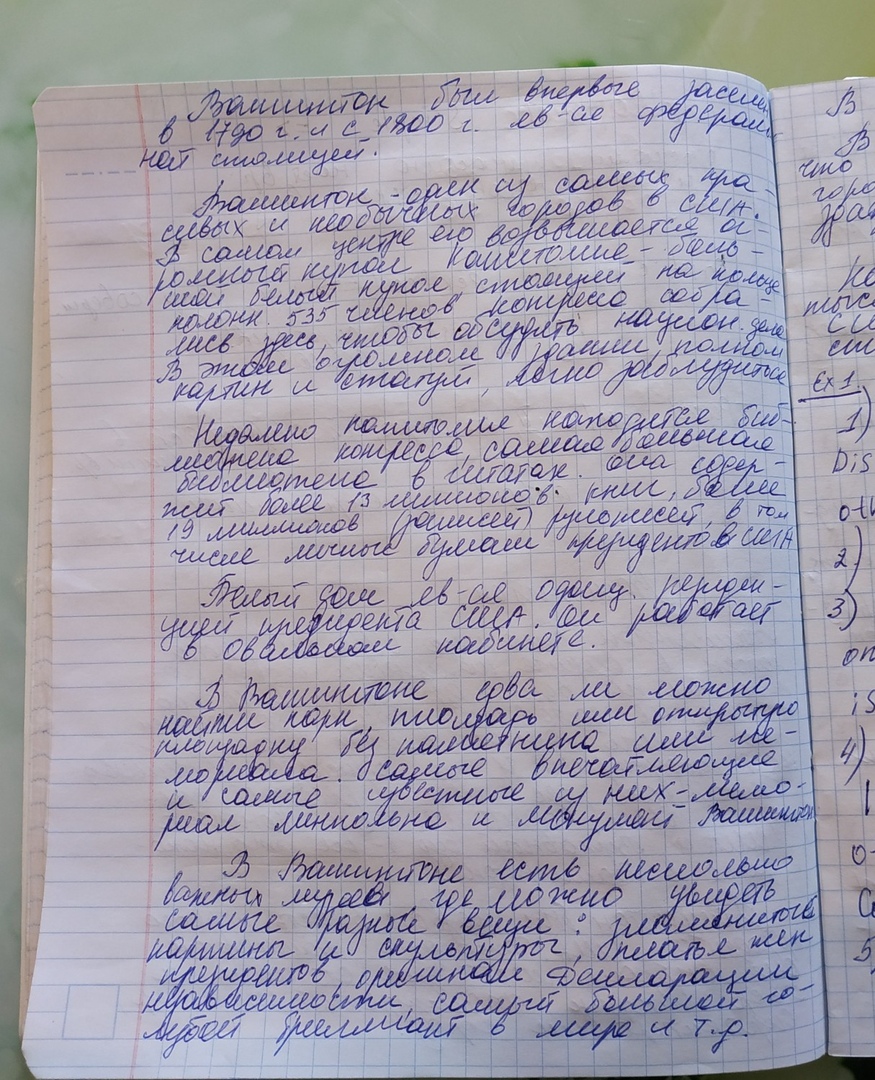 Вашингтон был впервые заселен
в 1790 г. и с 1800 г. яв-ся федераль
ной столицей.
Вашингтон - один из самых кра-
сивых и необычных городов в США.
В самом центре его возвышается ог-
ромный купол Капитолия - боль-
шой белый купол, стоящий на кольце
колонн. 535 членов конгресса собра-
лись здесь, чтобы обсудить национ. дела
В этом огромном здании, полном
картин и статуй, легко заблудиться
Недалеко капитолия находится биб-
лиотека конгресса, самая большая
библиотека в штатах. Она содер-
жит более 13 миллионов книг, более
19 миллионов (записей) рукописей, в том
числе личные бумаги президентов США
Белый дом яв-ся официц. резиден-
цией президента США. Он работает
в Овальном кабинете.
В Вашингтоне едва ли можно
найти парк, площадь или открытую
площадку без памятника или ме-
мориала. Самые впечатляющие
и самые известные из них - мемо-
риал Линкольна и монумент Вашингтон
В Вашингтоне есть несколько
важных музеев, где можно увидеть
самые разные вещи: знаменитые
картины и скульптуры, платья жен
президентов, оригинал Декларации
независимости, самый большой го-
лубой бриллиант в мире и т.д.
В
В
что
горо
здан
тыс
Ex 1
1)
Dis
2)
3)
is
4)
5